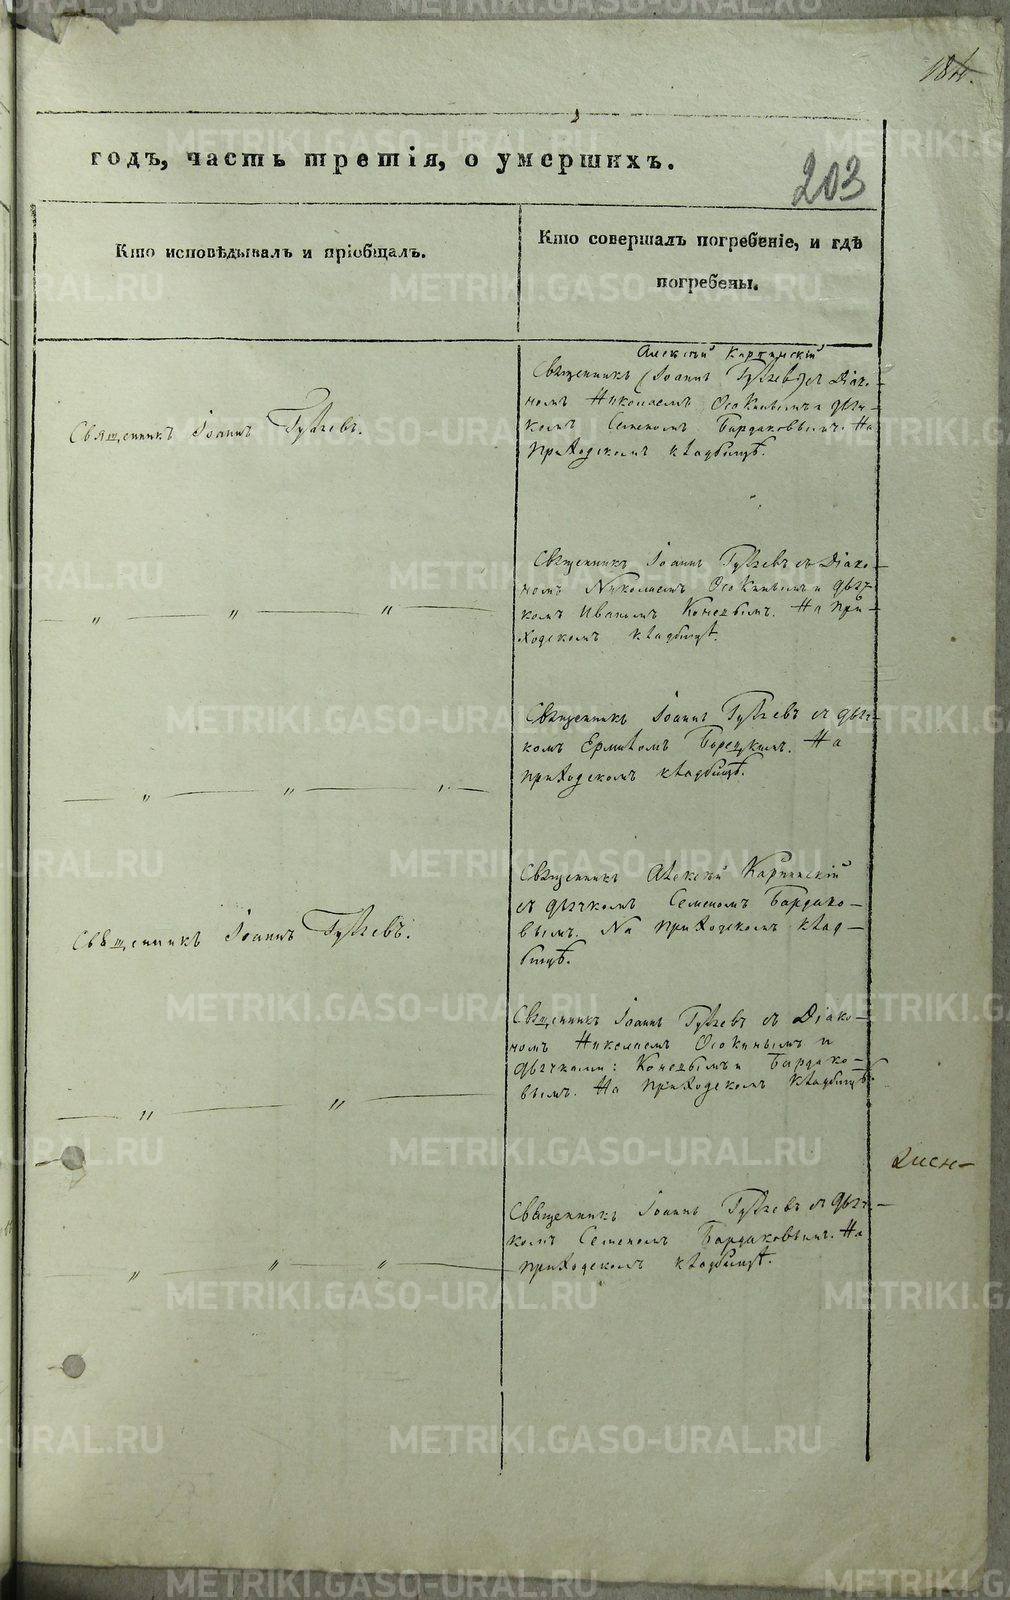 годъ, часть третія, о умершихъ.
203
Кто исповѣдывалъ и пріобщалъ.
Кто совершалъ погребеніе, и гдѣ
погребены.
Алексѣй Карпинскій
Священникъ (Іоаннъ Гуляевъ) съ Діако-
номъ Николаемъ Осокинымъ и дьяч-
комъ Семеномъ Бардаковымъ. На
приходскомъ кладбищѣ.
Священникъ Іоаннъ Гуляевъ.
Священникъ Іоаннъ Гуляевъ съ Діако-
номъ Николаемъ Осокинымъ и дьяч-
комъ Иваномъ Коневымъ. На при-
ходскомъ кладбищѣ.
— „ — „ — „ —
Священникъ Іоаннъ Гуляевъ съ дьяч-
комъ Ермиломъ Борецкимъ. На
приходскомъ кладбищѣ.
— „ — „ — „ —
Священникъ Алексѣй Карпинскій
съ дьячкомъ Семеномъ Бардако-
вымъ. На приходскомъ клад-
бищѣ.
Священникъ Іоаннъ Гуляевъ.
Священникъ Іоаннъ Гуляевъ съ Діако-
номъ Николаемъ Осокинымъ и
дьячками: Коневымъ и Бардако-
вымъ. На приходскомъ кладбищѣ.
— „ — „ —
Священникъ Іоаннъ Гуляевъ съ дьяч-
комъ Семеномъ Бардаковымъ. На
приходскомъ кладбищѣ.
— „ — „ — „ —
METRIKI.GASO-URAL.RU